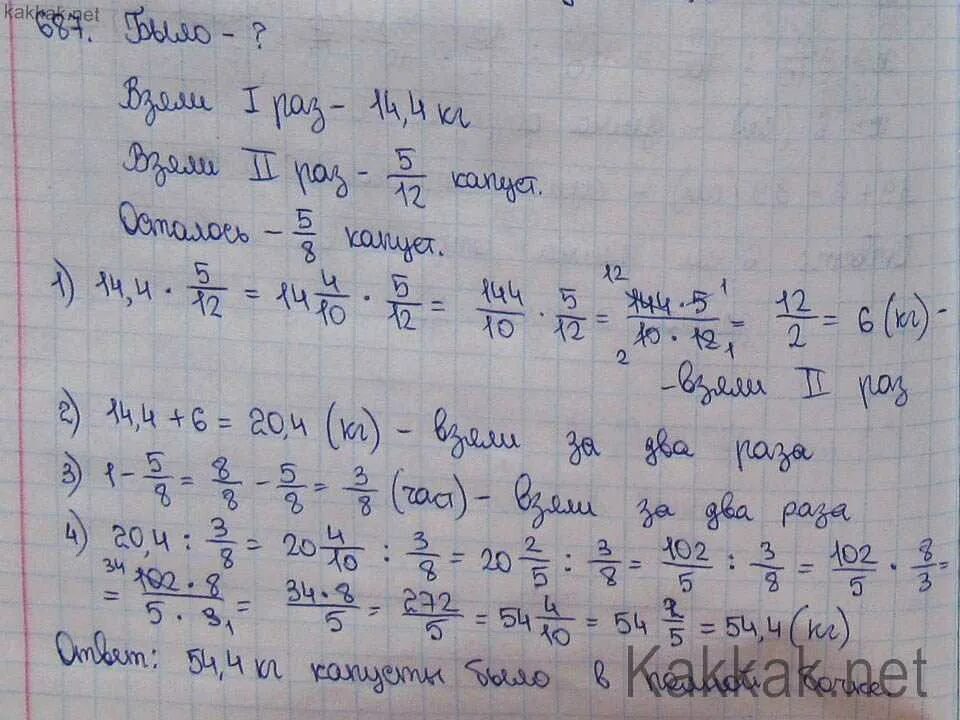 kakkak.net
687. Было - ?
Взяли I раз - 14,4 кг
Взяли II раз - 5/12 капуст.
Осталось - 5/8 капуст.
1) 14,4 · 5/12 = 14 4/10 · 5/12 = 144/10 · 5/12 = 144 · 5 / 10 · 12 = 12/2 = 6 (кг) -
12 1 2 1
- взяли II раз
2) 14,4 + 6 = 20,4 (кг) - взяли за два раза
3) 1 - 5/8 = 8/8 - 5/8 = 3/8 (част) - взяли за два раза
4) 20,4 : 3/8 = 20 4/10 : 3/8 = 20 2/5 : 3/8 = 102/5 : 3/8 = 102/5 · 8/3 =
34 1
= 102 · 8 / 5 · 3 = 34 · 8 / 5 = 272/5 = 54 4/10 = 54 2/5 = 54,4 (кг)
Ответ: 54,4 кг капусты было в полной бочке
Kakkak.net